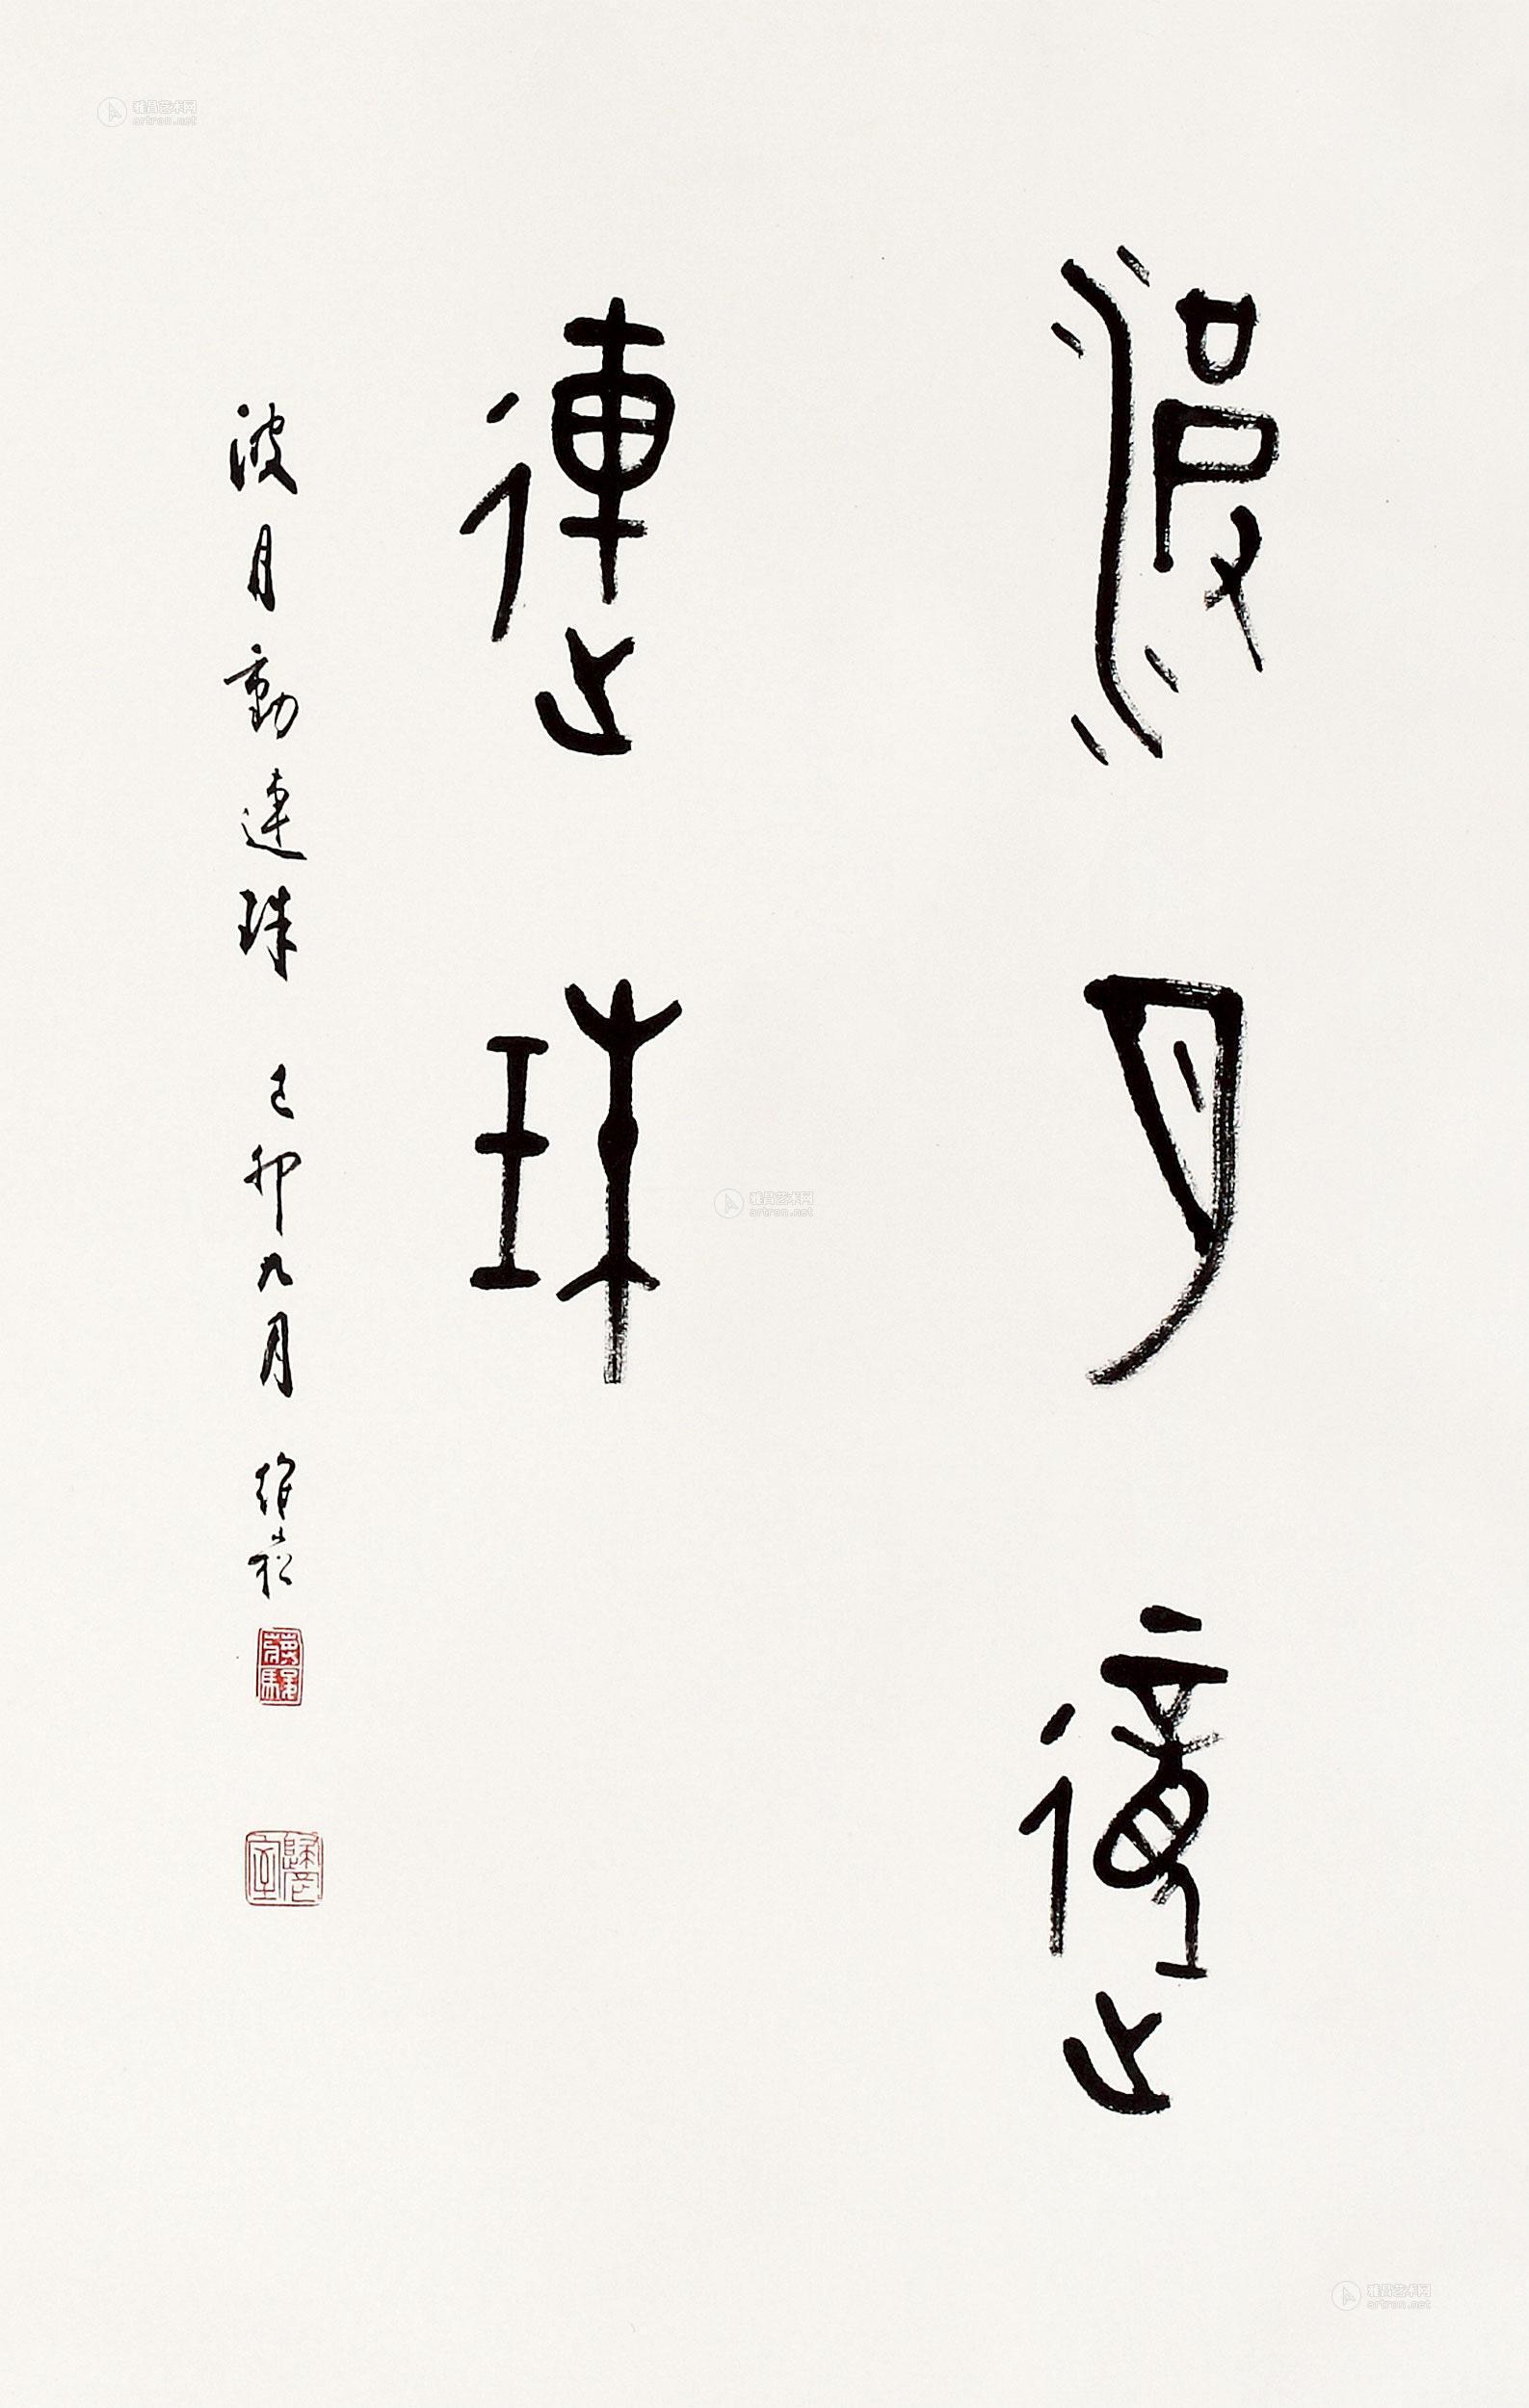 波月動
連珠
波月動連珠 己卯九月 維崧
雅昌艺术网
artron.net
雅昌艺术网
artron.net
雅昌艺术网
artron.net